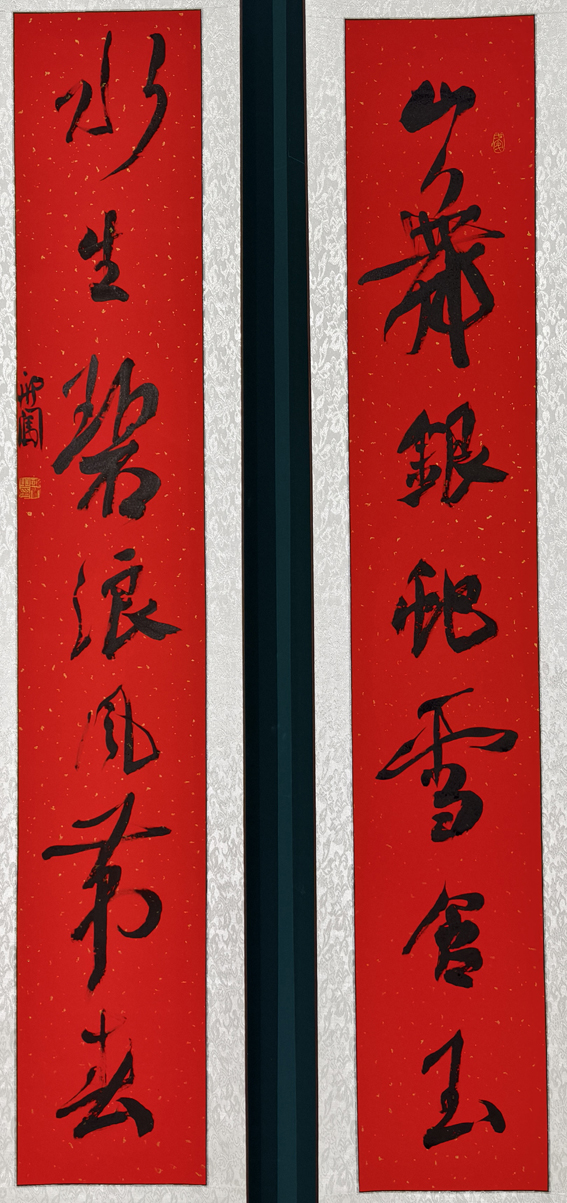 山舞銀蛇雪含玉
水生碧浪風帶春